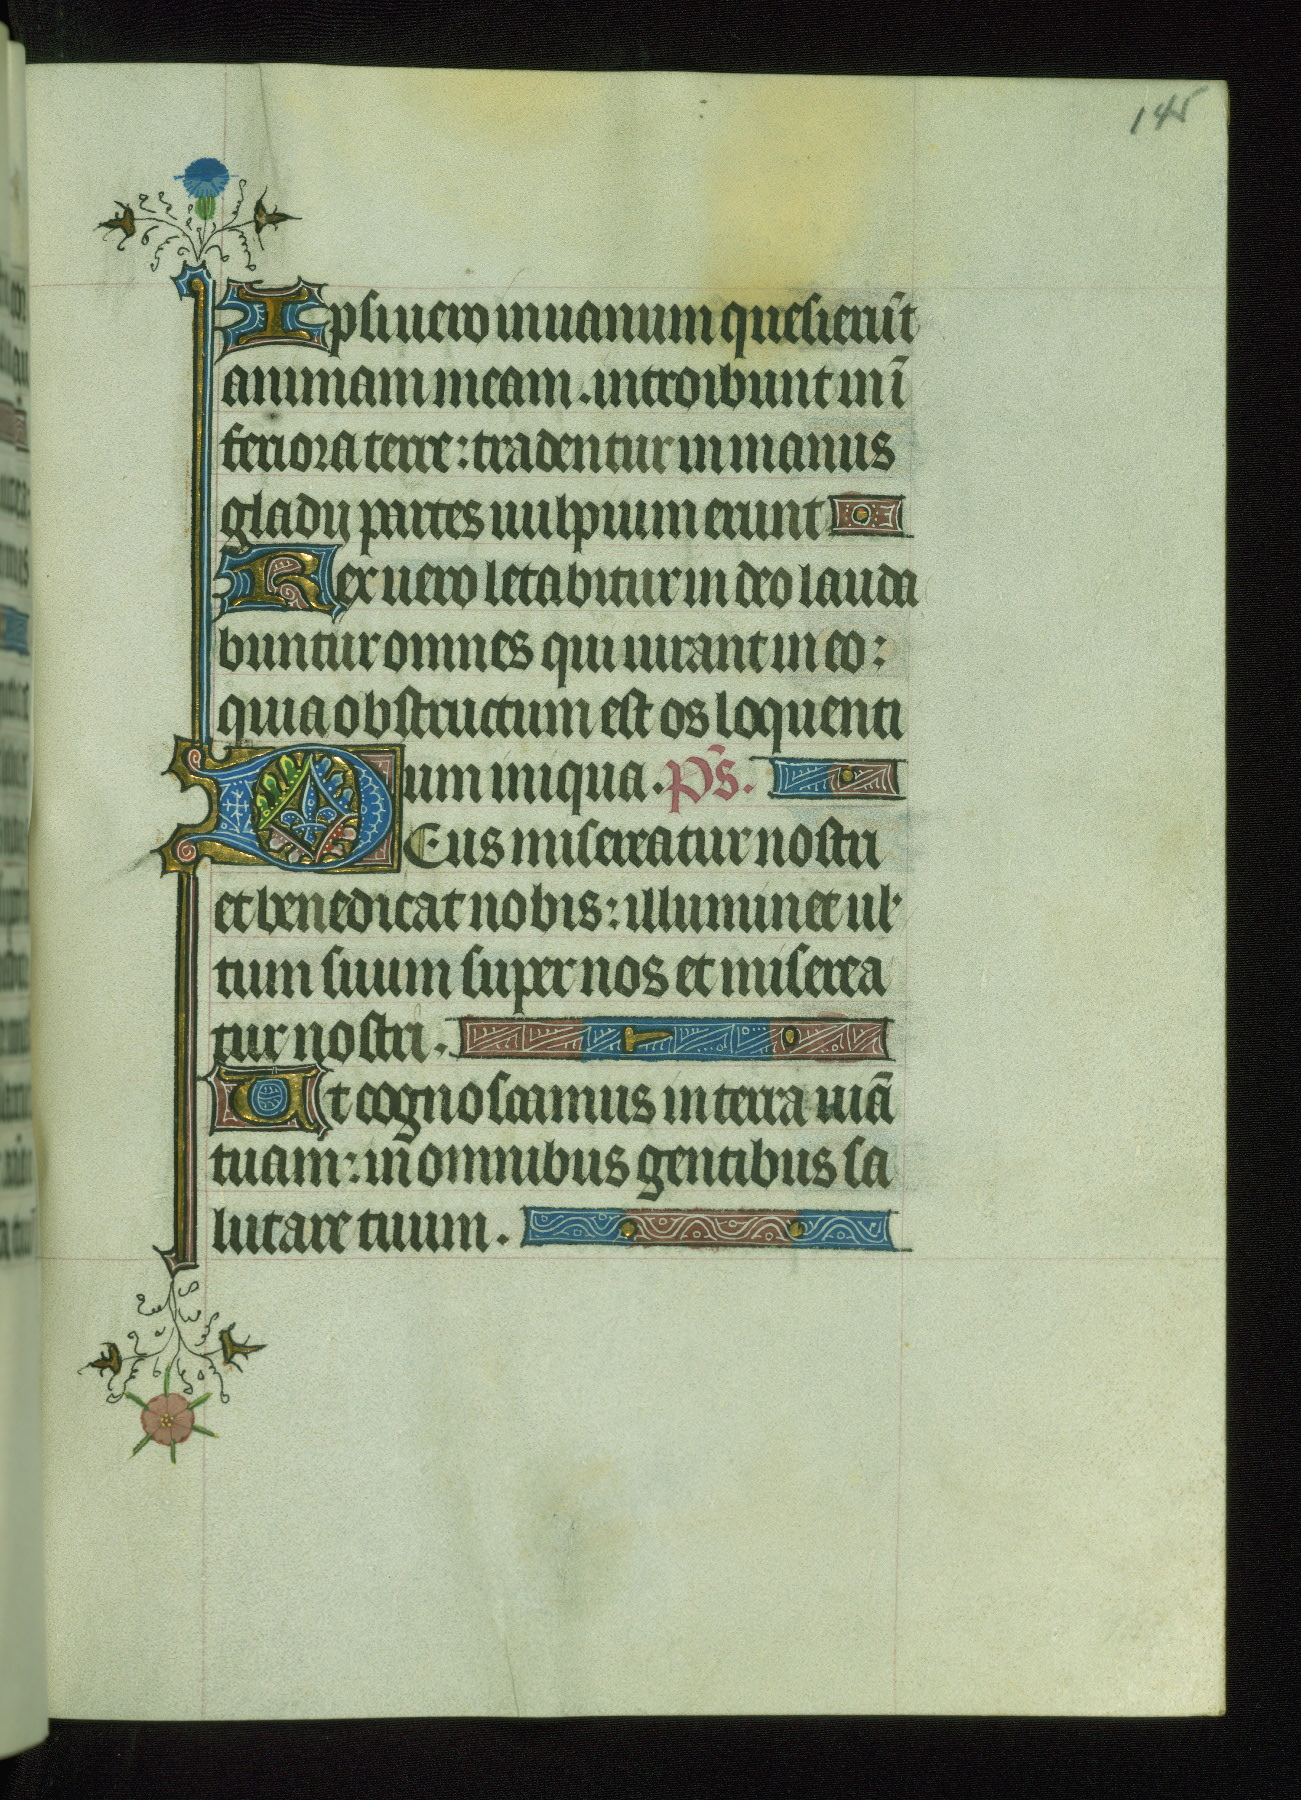 145
Ipsi uero in uanum quesierūt
animam meam. introibunt in ī
feriora terre: tradentur in manus
gladij partes uulpium erunt
Rex uero letabitur in deo lauda
buntur omnes qui iurant in eo:
quia obstructum est os loquenti
um iniqua. Ps̄.
DEus misereatur nostri
et benedicat nobis: illuminet uł
tum suum super nos et miserea
tur nostri.
Ut cognoscamus in terra uiā
tuam: in omnibus gentibus sa
lutare tuum.